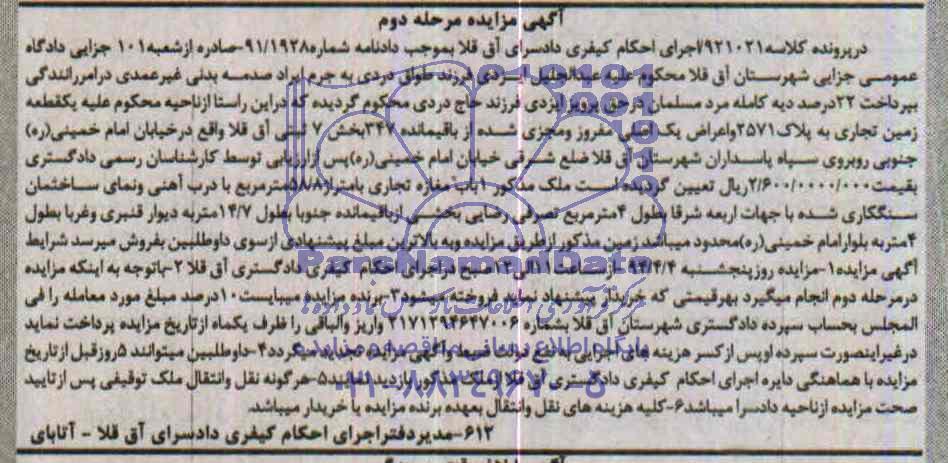 آگهی مزایده مرحله دوم
درپرونده کلاسه ۹۲۱۰۲۱/اجرای احکام کیفری دادسرای آق قلا بموجب دادنامه شماره ۹۱/۱۹۲۸-صادره ازشعبه ۱۰۱ جزایی دادگاه
عمومی جزایی شهرستان آق قلا محکوم علیه عبدالجلیل ایزدی فرزند طواق دردی به جرم ایراد صدمه بدنی غیرعمدی درامررانندگی
بپرداخت ۲۲درصد دیه کامله مرد مسلمان درحق پرویز ایزدی فرزند حاج دردی محکوم گردیده که دراین راستا ازناحیه محکوم علیه یکقطعه
زمین تجاری به پلاک ۲۵۷۱واعراض یک اصلی مفروز ومجزی شده از باقیمانده ۳۴۷بخش ۷ ثبتی آق قلا واقع درخیابان امام خمینی(ره)
جنوبی روبروی سپاه پاسداران شهرستان آق قلا ضلع شرقی خیابان امام خمینی(ره)پس ازارزیابی توسط کارشناسان رسمی دادگستری
بقیمت ۲/۶۰۰/۰۰۰۰/۰۰۰ریال تعیین گردیده است ملک مذکور ۱باب مغازه تجاری بامتراژ ۵۸/۸مترمربع با درب آهنی ونمای ساختمان
سنگکاری شده با جهات اربعه شرقا بطول ۴مترمربع تصرفی رضایی بخشی ازباقیمانده جنوبا بطول ۱۴/۷متربه دیوار قنبری وغربا بطول
۴متربه بلوارامام خمینی(ره)محدود میباشد زمین مذکور ازطریق مزایده وبه بالاترین مبلغ پیشنهادی ازسوی داوطلبین بفروش میرسد شرایط
آگهی مزایده۱-مزایده روزپنجشنبه ۹۴/۴/۴ ازساعت ۱۱الی ۱۲صبح دراجرای احکام کیفری دادگستری آق قلا ۲-باتوجه به اینکه مزایده
درمرحله دوم انجام میگیرد بهرقیمتی که خریدار پیشنهاد نماید فروخته میشود۳-برنده مزایده میبایست ۱۰درصد مبلغ مورد معامله را فی
المجلس بحساب سپرده دادگستری شهرستان آق قلا بشماره ۲۱۷۱۲۹۲۶۴۷۰۰۶ واریز والباقی را ظرف یکماه ازتاریخ مزایده پرداخت نماید
درغیراینصورت سپرده اوپس ازکسر هزینه های اجرایی به نفع دولت ضبط وآگهی مزایده تجدید میگردد۴-داوطلبین میتوانند ۵روزقبل ازتاریخ
مزایده با هماهنگی دایره اجرای احکام کیفری دادگستری آق قلا ازملک مذکور بازدید نمایند۵-هرگونه نقل وانتقال ملک توقیفی پس ازتایید
صحت مزایده ازناحیه دادسرا میباشد۶-کلیه هزینه های نقل وانتقال بعهده برنده مزایده یا خریدار میباشد.
۶۱۲-مدیردفتراجرای احکام کیفری دادسرای آق قلا - آتابای
ParsNamadData
پایگاه اطلاع رسانی مناقصه و مزایده
۰۲۱-۸۸۳۴۹۶۷۰-۵